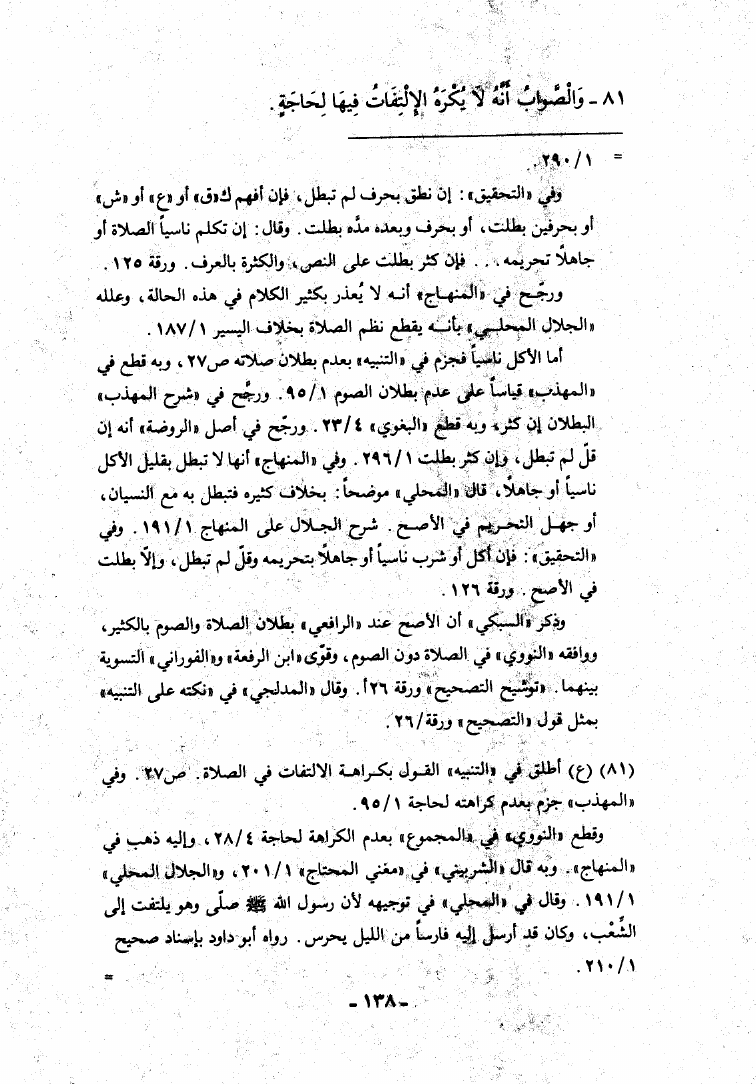 ٨١ - وَالْصَّوابُ أَنَّهُ لَا يُكْرَهُ الإِلْتِفَاتُ فِيهَا لِحَاجَةٍ .
= ٢٩٠/١ .
وفي «التحقيق» : إن نطق بحرف لم تبطل، فإن أفهم ك«ق» أو «ع» أو «ش»
أو بحرفين بطلت، أو بحرف وبعده مدّه بطلت. وقال: إن تكلم ناسياً الصلاة أو
جاهلاً تحريمه . . . فإن كثر بطلت على النص، والكثرة بالعرف. ورقة ١٢٥ .
ورجّح في «المنهاج» أنه لا يُعذر بكثير الكلام في هذه الحالة، وعلله
«الجلال المحلي» بأنه يقطع نظم الصلاة بخلاف اليسير ١٨٧/١ .
أما الأكل ناسياً فجزم في «التنبيه» بعدم بطلان صلاته ص٢٧، وبه قطع في
«المهذب» قياساً على عدم بطلان الصوم ٩٥/١. ورجَّح في «شرح المهذب»
البطلان إن كثر، وبه قطع «البغوي» ٢٣/٤. ورجّح في أصل «الروضة» أنه إن
قلّ لم تبطل، وإن كثر بطلت ٢٩٦/١. وفي «المنهاج» أنها لا تبطل بقليل الأكل
ناسياً أو جاهلاً، قال «المحلي» موضحاً: بخلاف كثيره فتبطل به مع النسيان،
أو جهل التحريم في الأصح. شرح الجلال على المنهاج ١٩١/١. وفي
«التحقيق» : فإن أكل أو شرب ناسياً أو جاهلاً بتحريمه وقلّ لم تبطل، وإلاّ بطلت
في الأصح. ورقة ١٢٦ .
وذكر «السبكي» أن الأصح عند «الرافعي» بطلان الصلاة والصوم بالكثير،
ووافقه «النووي» في الصلاة دون الصوم، وقوّى «ابن الرفعة» و«الفوراني» التسوية
بينهما. «توشيح التصحيح» ورقة ٢٦أ. وقال «المدلجي» في «نكته على التنبيه»
بمثل قول «التصحيح» ورقة/٢٦ .
(٨١) (ع) أطلق في «التنبيه» القول بكراهة الالتفات في الصلاة. ص٢٧. وفي
«المهذب» جزم بعدم كراهته لحاجة ٩٥/١.
وقطع «النووي» في «المجموع» بعدم الكراهة لحاجة ٢٨/٤، وإليه ذهب في
«المنهاج». وبه قال «الشربيني» في «مغني المحتاج» ٢٠١/١، و«الجلال المحلي»
١٩١/١. وقال في «المحلي» في توجيهه لأن رسول الله ﷺ صلّى وهو يلتفت إلى
الشِّعْب، وكان قد أرسل إليه فارساً من الليل يحرس. رواه أبو داود بإسناد صحيح
٢١٠/١ .
=
- ١٣٨ -